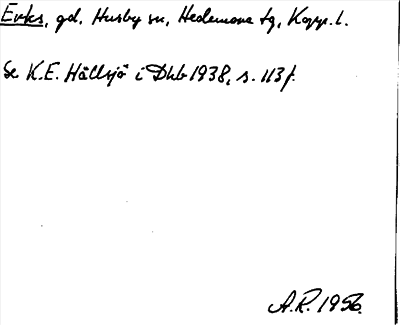 Evkes, gd, Husby sn, Hedemora tg, Kopp. l.
Se K.E. Hällsjö i Dhb 1938, s. 113 f.
A.R. 1956.